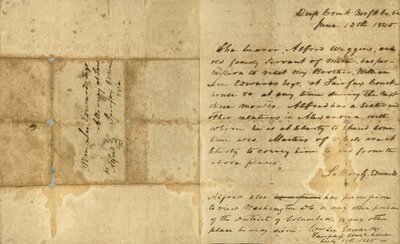 Deep Creek Norfolk Co. Va
June 13th 1845
The bearer Alfred Wiggins, an
old family servant of mine, has per-
mission to visit my Brother, William
Lee Edwards Esqr, at Fairfax Court
house Va. at any time during the next
three months. Alfred has a Sister and
other relatives in Alexandria with
whom he is at liberty to spend some
time also. Masters of vessels are at
liberty to convey him to and from the
above places.
Edwards
Alfred also has permission
to visit Washington D.C. or any other portion
of the District of Columbia, or any other
place he may desire.
Wm Lee Edwards
Fairfax Court house
July 11th 1845
Wm Lee Edwards Esqr
Alfred